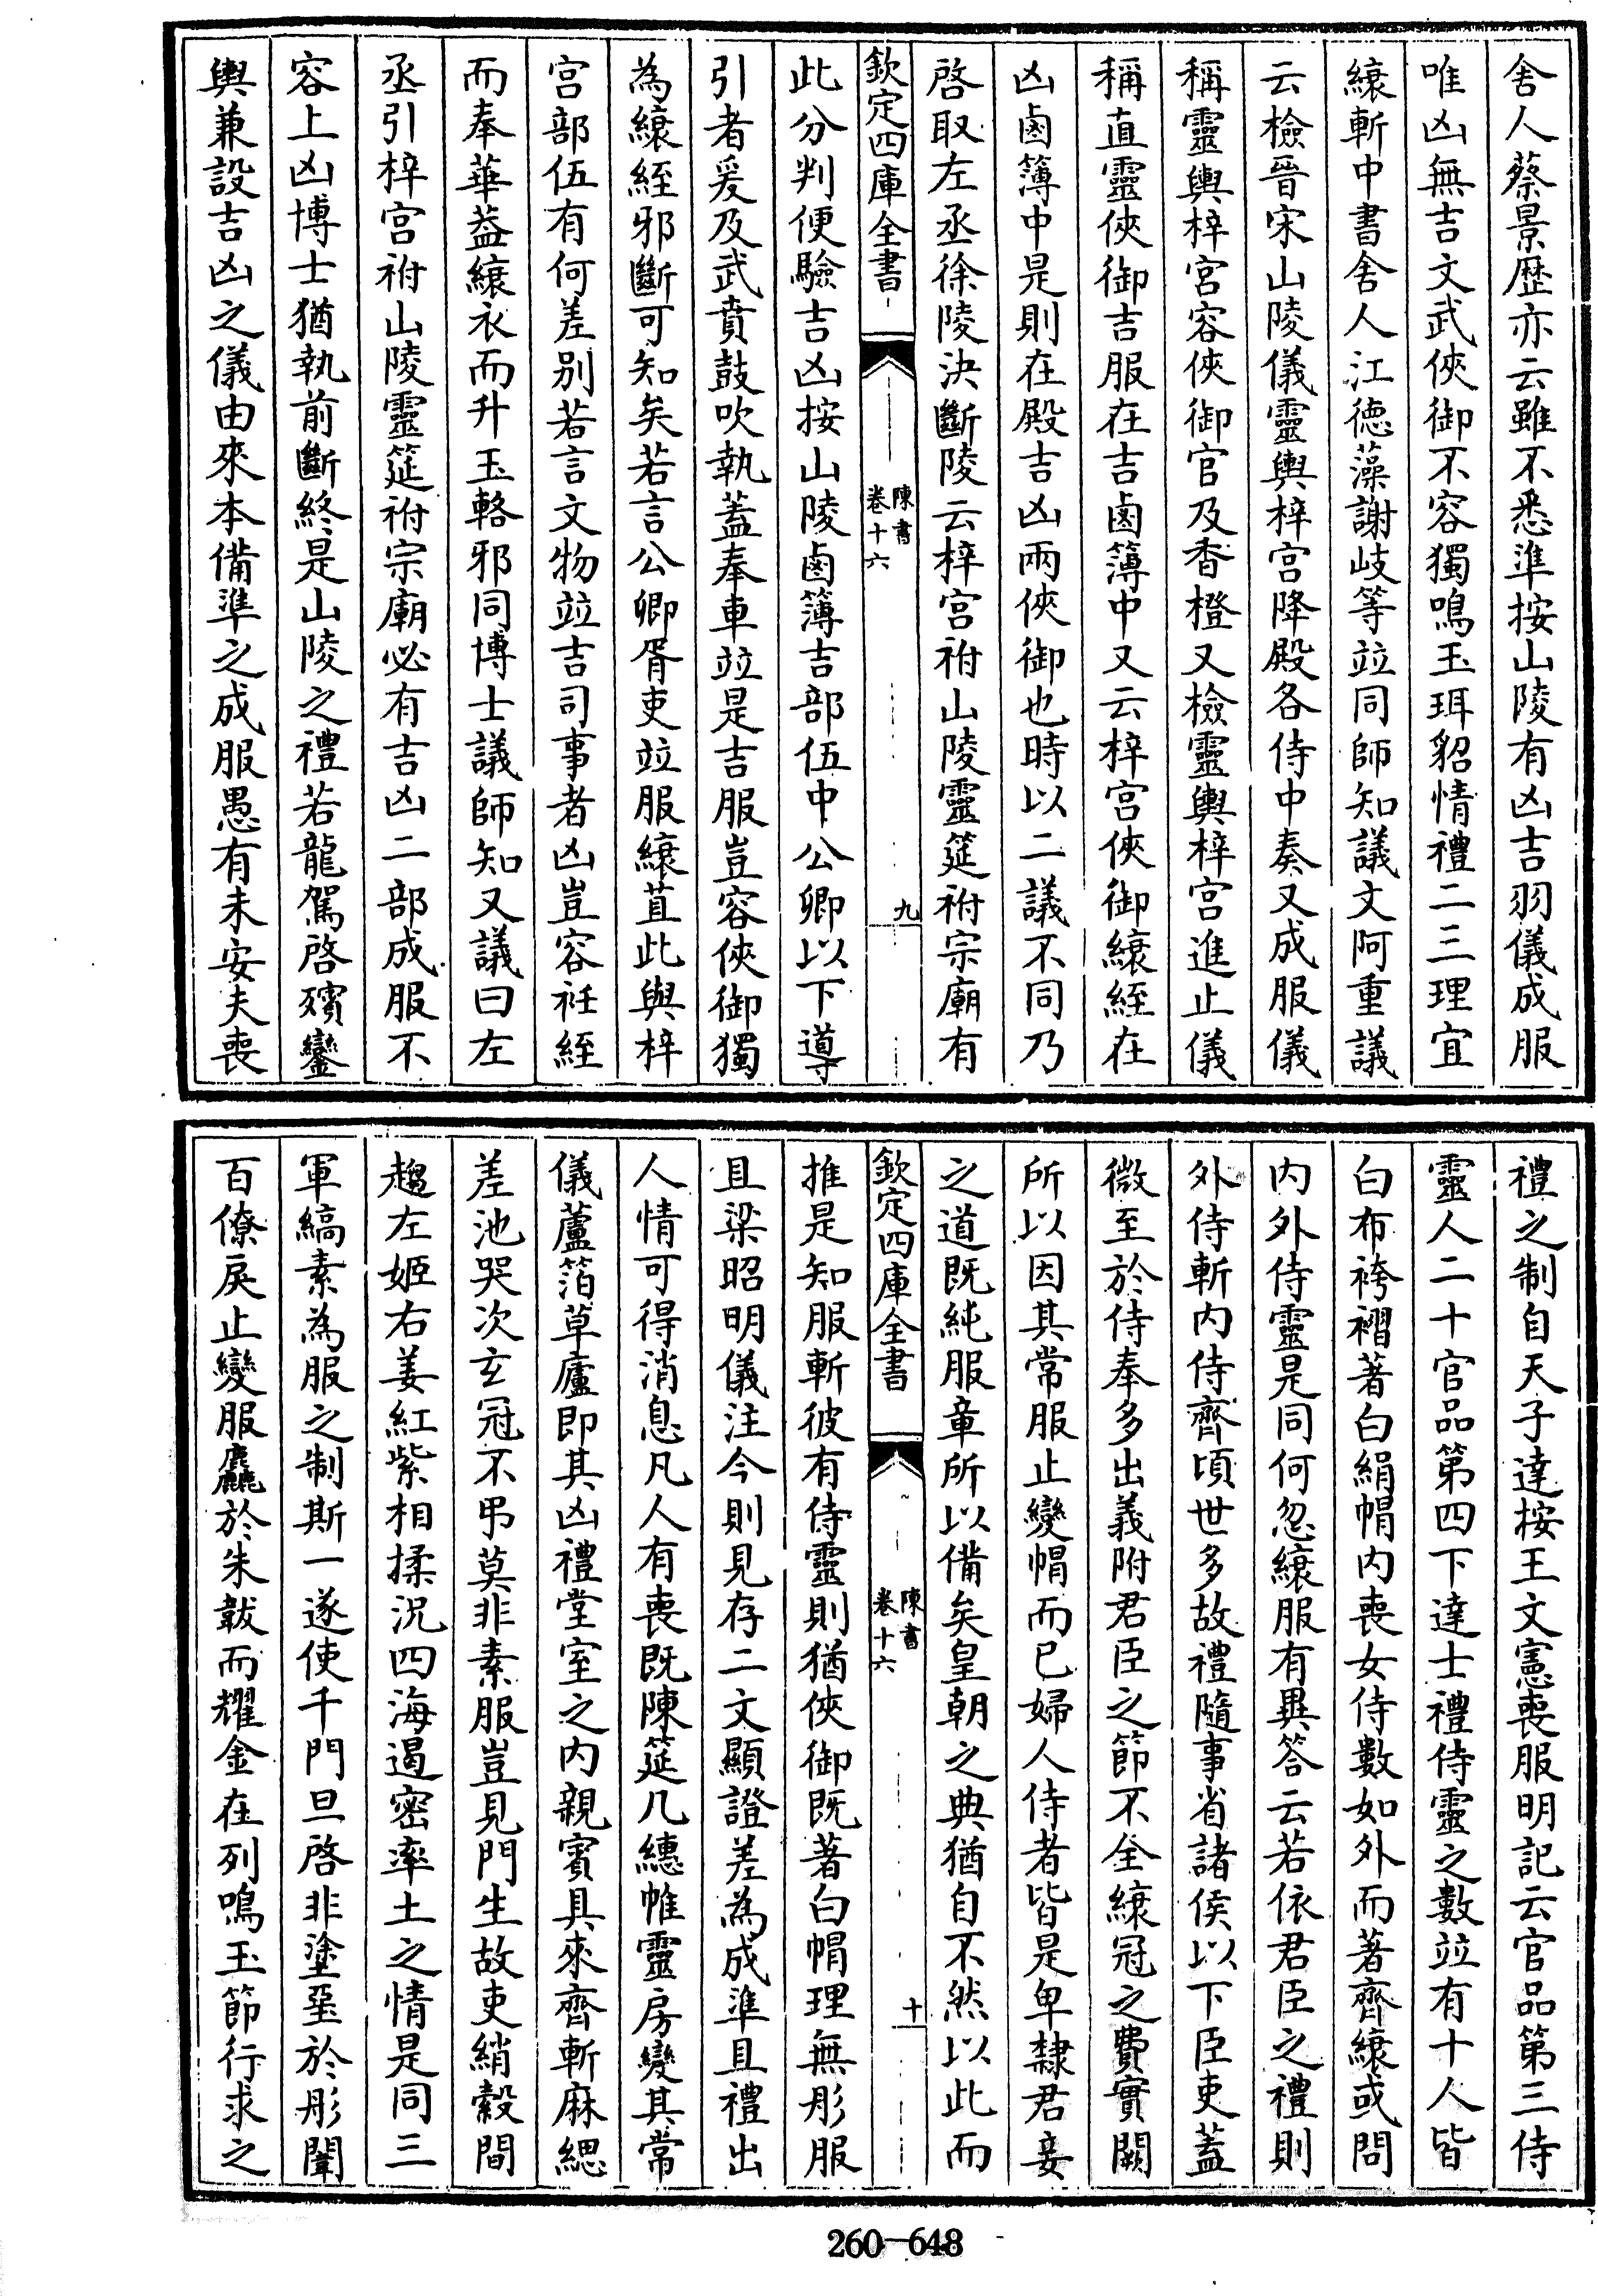 舍人蔡景歴亦云雖不悉準按山陵有凶吉羽儀成服
唯凶無吉文武俠御不容獨鳴玉珥貂情禮二三理宜
縗斬中書舍人江德藻謝岐等竝同師知議文阿重議
云檢晉宋山陵儀靈輿梓宮降殿各侍中奏又成服儀
稱靈輿梓宮容俠御官及香橙又檢靈輿梓宮進止儀
稱直靈俠御吉服在吉鹵簿中又云梓宮俠御縗絰在
凶鹵簿中是則在殿吉凶兩俠御也時以二議不同乃
啓取左丞徐陵決斷陵云梓宮祔山陵靈筵祔宗廟有
欽定四庫全書
陳書
卷十六
九
此分判便驗吉凶按山陵鹵簿吉部伍中公卿以下導
引者爰及武賁鼓吹執蓋奉車竝是吉服豈容俠御獨
為縗絰邪斷可知矣若言公卿胥吏竝服縗苴此與梓
宮部伍有何差别若言文物竝吉司事者凶豈容袵絰
而奉華葢縗衣而升玉輅邪同博士議師知又議曰左
丞引梓宮祔山陵靈筵祔宗廟必有吉凶二部成服不
容上凶博士猶執前斷終是山陵之禮若龍駕啓殯鑾
輿兼設吉凶之儀由來本備準之成服愚有未安夫喪
禮之制自天子達按王文憲喪服明記云官品第三侍
靈人二十官品第四下達士禮侍靈之數竝有十人皆
白布袴褶著白絹帽内喪女侍數如外而著齊縗或問
内外侍靈是同何忽縗服有異答云若依君臣之禮則
外侍斬内侍齊頃世多故禮隨事省諸侯以下臣吏蓋
微至於侍奉多出義附君臣之節不全縗冠之費實闕
所以因其常服止變帽而已婦人侍者皆是卑隸君妾
之道既純服章所以備矣皇朝之典猶自不然以此而
欽定四庫全書
陳書
卷十六
十
推是知服斬彼有侍靈則猶俠御既著白帽理無彤服
且梁昭明儀注今則見存二文顯證差為成準且禮出
人情可得消息凡人有喪既陳筵几繐帷靈房變其常
儀蘆箔草廬即其凶禮堂室之内親賓具來齊斬麻緦
差池哭次玄冠不弔莫非素服豈見門生故吏綃縠間
趨左姬右姜紅紫相揉況四海遏密率土之情是同三
軍縞素為服之制斯一遂使千門旦啓非塗堊於彤闈
百僚戾止變服麤於朱韍而耀金在列鳴玉節行求之
260-648